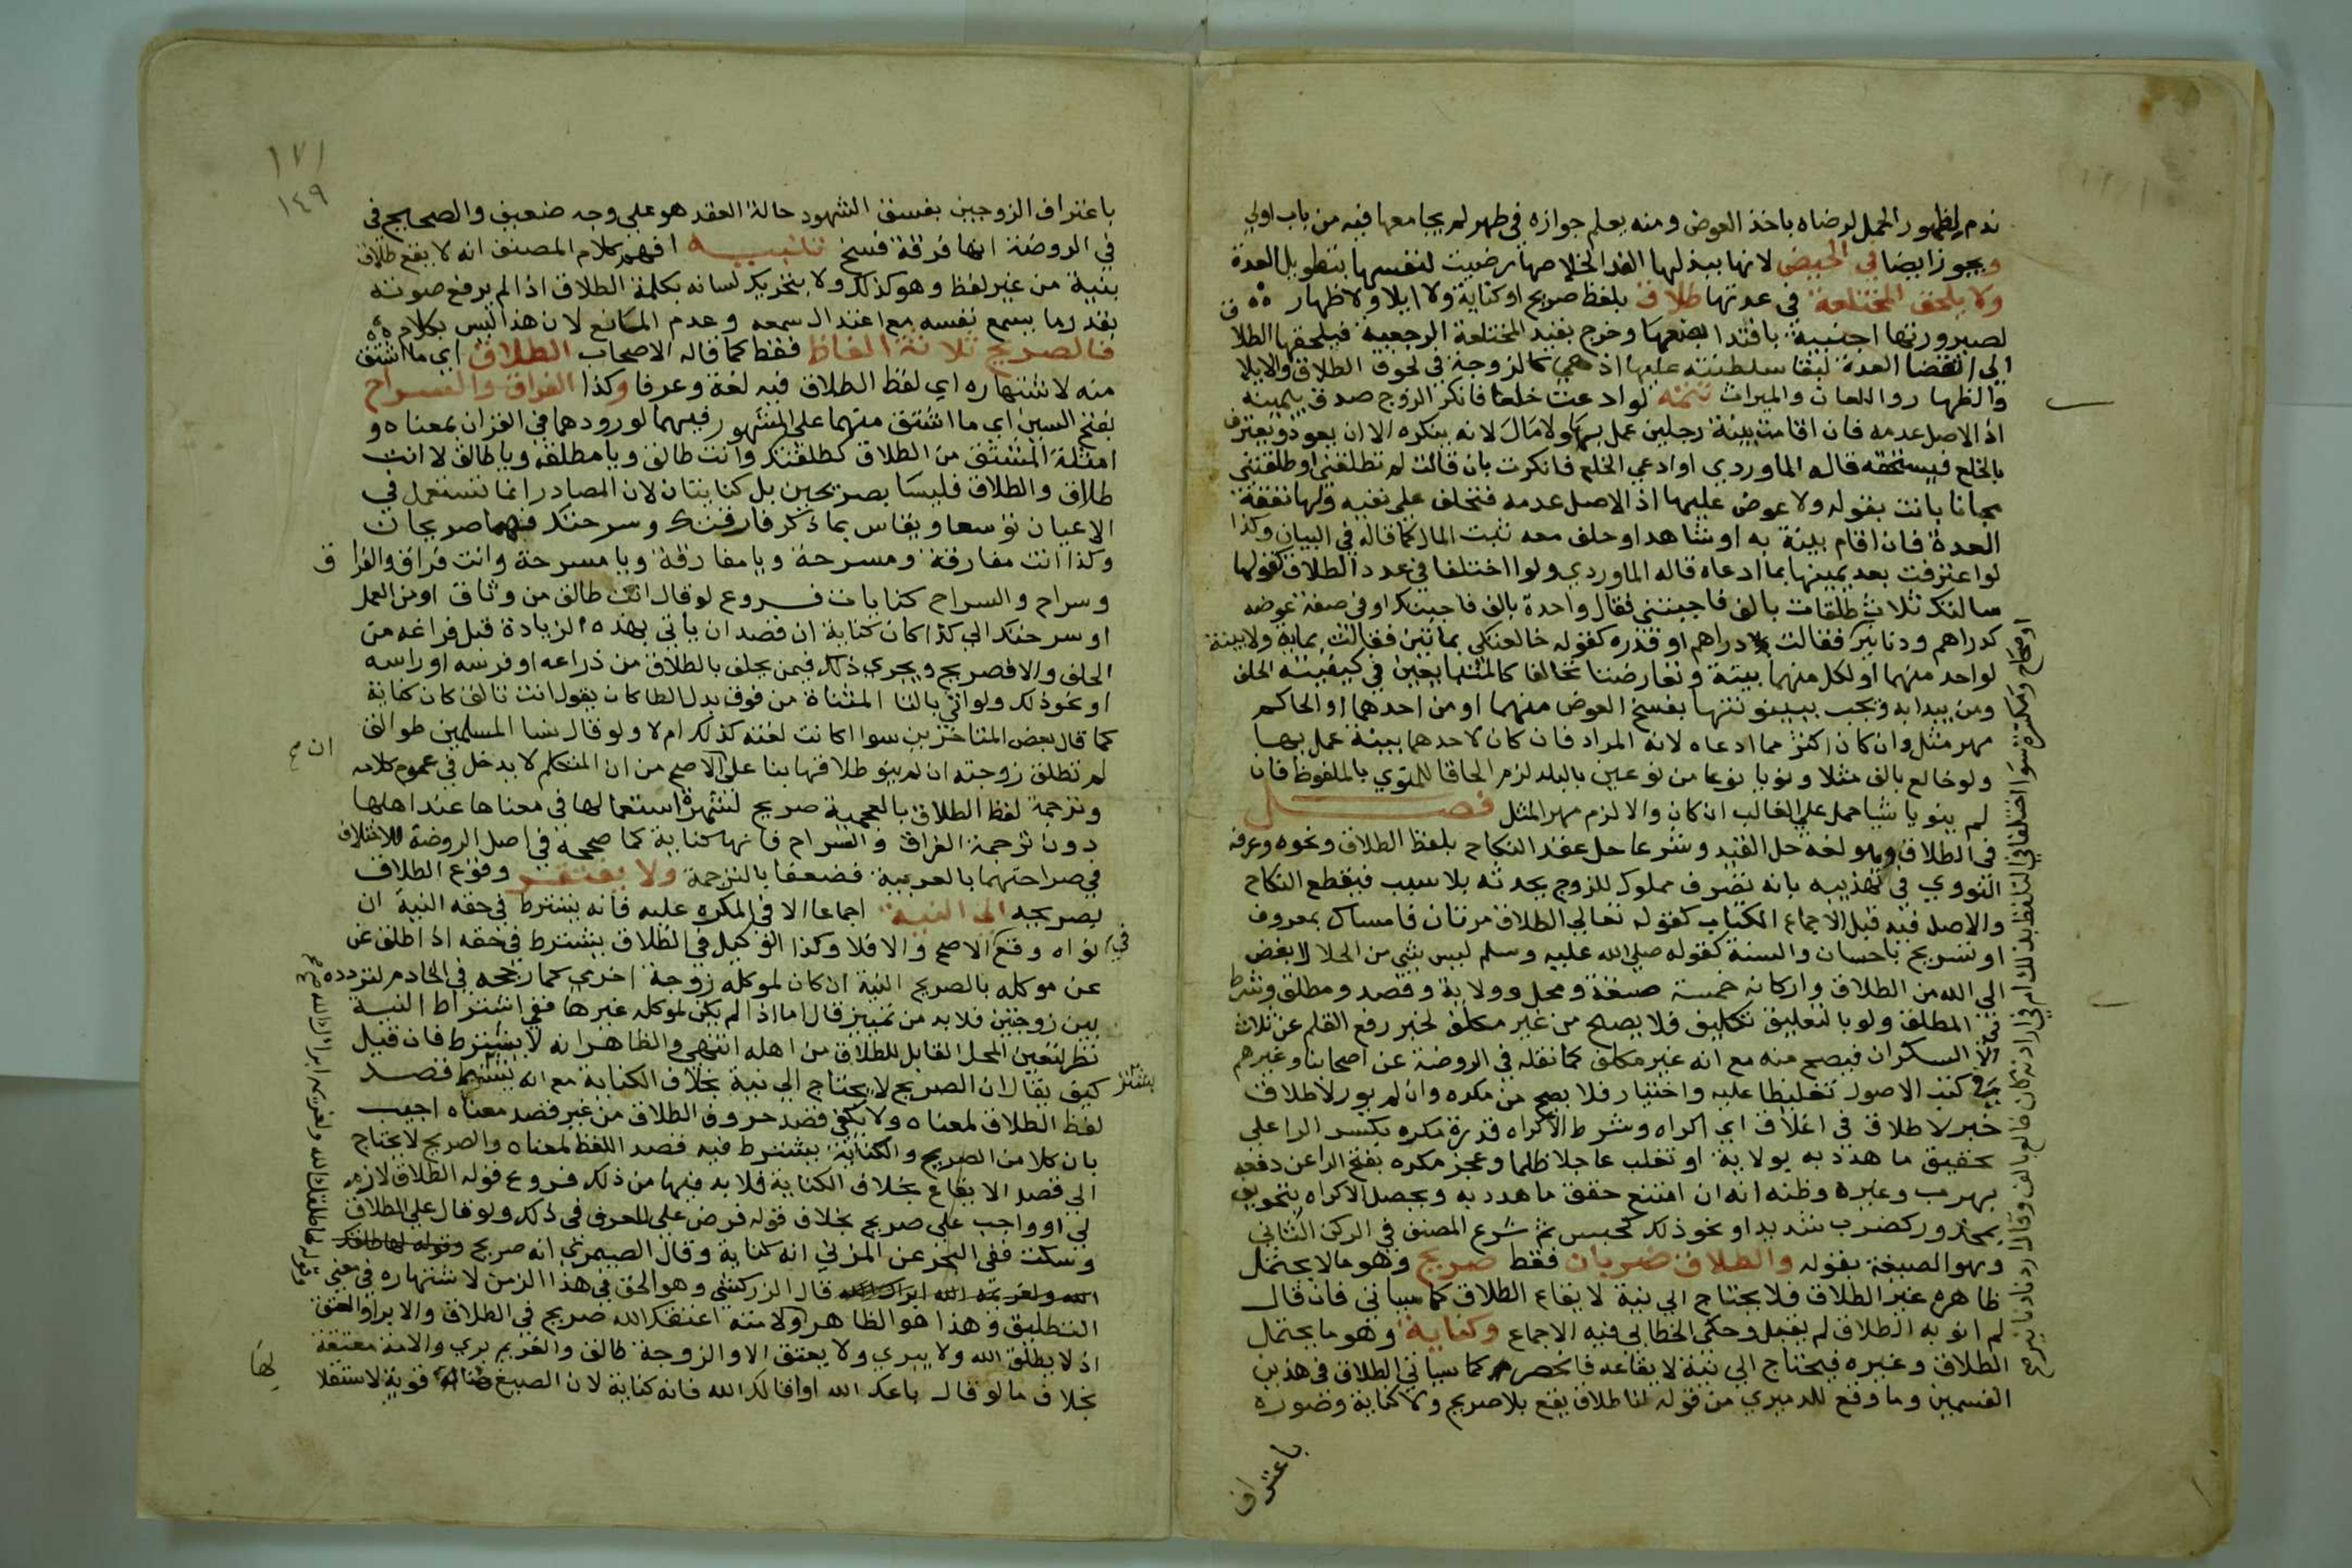 ندم لظهور الحمل لرضاه باخذ العوض ومنه يعلم جوازه في طهر لم يجامعها فيه من باب اولي
ويجوز ايضا في الحيض لانها ببذلها الفدا لخلاصها رضيت لنفسها بتطويل العدة
ولا يلحق المختلعة في عدتها طلاق بلفظ صريح او كناية ولا ايلا ولا ظهار
لصيرورتها اجنبية بافتدا بضعها وخرج بقيد المختلعة الرجعية فيلحقها الطلا ق
الي انقضا العدة لبقا سلطنته عليها اذ هي كالزوجة في لحوق الطلاق والايلا
والظهار واللعان والميراث تتمة لو ادعت خلعا فانكر الزوج صدق بيمينه
اذ الاصل عدمه فان اقامت بينة رجلين عمل بها ولا مال لانه ينكره الا ان يعود ويعترف
بالخلع فيستحقه قاله الماوردي او ادعي الخلع فانكرت بان قالت لم تطلقني او طلقتني
مجانا بانت بقوله ولا عوض عليها اذ الاصل عدمه فتحلف علي نفيه ولها نفقة
العدة فان اقام بينة به او شاهدا وحلف معه ثبت المال كما قاله في البيان وكذا
لو اعترفت بعد يمينها بما ادعاه قاله الماوردي ولو اختلفا في عدد الطلاق كقولها
سالتك ثلاث طلقات بالف فاجبتني فقال واحدة بالف فاجبتك او في صفة عوضه
كدراهم ودنانير فقالت بدراهم او قدره كقوله خالعتك بمائتين فقالت بماية ولا بينة
لواحد منهما او لكل منهما بينة وتعارضتا تحالفا كالمتبايعين في كيفية الحلف
ومن يبدا به ويجب ببينونتها بفسخ العوض منهما او من احدهما او الحاكم
مهر مثل وان كان اكثر مما ادعاه لانه المراد فان كان لاحدهما بينة عمل بها
ولو خالع بالف مثلا ونويا نوعا من نوعين بالبلد لزم الحاقا للمنوي بالملفوظ فان
لم ينويا شيا حمل علي الغالب ان كان والا لزم مهر المثل فصل
في الطلاق وهو لغة حل القيد وشرعا حل عقد النكاح بلفظ الطلاق ونحوه وعرفه
النووي في تهذيبه بانه تصرف مملوك للزوج يحدثه بلا سبب فيقطع النكاح
والاصل فيه قبل الاجماع الكتاب كقوله تعالي الطلاق مرتان فامساك بمعروف
او تسريح باحسان والسنة كقوله صلي الله عليه وسلم ليس شي من الحلال ابغض
الي الله من الطلاق واركانه خمسة صيغة ومحل وولاية وقصد ومطلق وشرط
في المطلق ولو بالتعليق تكليف فلا يصح من غير مكلف لخبر رفع القلم عن ثلاث
الا السكران فيصح منه مع انه غير مكلف كما نقله في الروضة عن اصحابنا وغيرهم
في كتب الاصول تغليظا عليه واختيار فلا يصح من مكره وان لم يور لا طلاق
خبر لا طلاق في اغلاق اي اكراه وشرط الاكراه قدرة مكره بكسر الرا علي
تحقيق ما هدد به بولاية او تغلب عاجلا ظلما وعجز مكره بفتح الرا عن دفعه
بهرب وغيره وظنه انه ان امتنع حقق ما هدد به ويحصل الاكراه بتخويف
بمحذور كضرب شديد او نحو ذلك كحبس ثم شرع المصنف في الركن الثاني
وهو الصيغة بقوله والطلاق ضربان فقط صريح وهو ما لا يحتمل
ظاهره غير الطلاق فلا يحتاج الي نية لايقاع الطلاق كما سياتي فان قال
لم انو به الطلاق لم يقبل وحكي الخطابي فيه الاجماع وكناية وهو ما يحتمل
الطلاق وغيره فيحتاج الي نية لايقاعه فانحصر كما سياتي الطلاق في هذين
القسمين وما وقع للدميري من قوله لنا طلاق يقع بلا صريح ولا كناية وصورة
باعتراف
١٧١
١٤٩
باعتراف الزوجين بفسق الشهود حالة العقد هو علي وجه ضعيف والصحيح في
في الروضة انها فرقة فسخ تنبيه افهم كلام المصنف انه لا يقع طلاق
بنية من غير لفظ وهو كذلك ولا بتحريك لسانه بكلمة الطلاق اذا لم يرفع صوته
بقدر ما يسمع نفسه مع اعتدال سمعه وعدم المانع لان هذا ليس بكلام
فالصريح ثلاثة الفاظ فقط كما قاله الاصحاب الطلاق اي ما اشتق
منه لاشتهاره اي لفظ الطلاق فيه لغة وعرفا وكذا الفراق والسراح
بفتح السين اي ما اشتق منهما علي المشهور فيهما لورودهما في القران بمعناه و
امثلة المشتق من الطلاق كطلقتك وانت طالق ويا مطلقة ويا طالق لا انت
طلاق والطلاق فليسا بصريحين بل كنايتان لان المصادر انما تستعمل في
الاعيان توسعا ويقاس بما ذكر فارقتك وسرحتك فهما صريحان
وكذا انت مفارقة ومسرحة ويا مفارقة ويا مسرحة وانت فراق والفرا ق
وسراح والسراح كنايات فروع لو قال انت طالق من وثاق او من العمل
او سرحتك الي كذا كان كناية ان قصد ان ياتي بهذه الزيادة قبل فراغه من
الحلف والا فصريح ويجري ذلك فيمن يحلف بالطلاق من ذراعه او فرسه او راسه
او نحو ذلك ولو اتي بالتا المثناة من فوق بدل الطا كان يقول انت تالق كان كناية
كما قال بعض المتاخرين سوا اكانت لغته كذلك ام لا ولو قال نسا المسلمين طوالق
لم تطلق زوجته ان لم ينو طلاقها بنا علي الاصح من ان المتكلم لا يدخل في عموم كلامه
وترجمة لفظ الطلاق بالعجمية صريح لشهرة استعمالها في معناها عند اهلها
دون ترجمة الفراق والسراح فانها كناية كما صححه في اصل الروضة للاختلاف
في صراحتهما بالعربية فضعفا بالترجمة ولا يفتقر وقوع الطلاق
بصريحه الي النية اجماعا الا في المكره عليه فانه يشترط في حقه النية ان
نواه وقع في الاصح والا فلا وكذا الوكيل في الطلاق يشترط في حقه اذا طلق عن
عن موكله بالصريح النية ان كان لموكله زوجة اخري كما رجحه في الخادم لتردده
بين زوجتين فلا بد من تمييز قال اما اذا لم يكن لموكله غيرها ففي اشتراط النية
نظر لتعين المحل القابل للطلاق من اهله انتهي والظاهر انه لا يشترط فان قيل
كيف يقال ان الصريح لا يحتاج الي نية بخلاف الكناية مع انه يشترط قصد
لفظ الطلاق لمعناه ولا يكفي قصد حروف الطلاق من غير قصد معناه اجيب
بان كلا من الصريح والكناية يشترط فيه قصد اللفظ لمعناه والصريح لا يحتاج
الي قصد الايقاع بخلاف الكناية فلا بد فيها من ذلك فروع قوله الطلاق لازم
لي او واجب علي صريح بخلاف قوله فرض علي للعرف في ذلك ولو قال علي الطلاق
وسكت ففي البحر عن المزني انه كناية وقال الصيمري انه صريح
قال الزركشي وهو الحق في هذا الزمن لاشتهاره في معني
التطليق وهذا هو الظاهر ولامته اعتقك الله صريح في الطلاق والابرا والعتق
اذ لا يطلق الله ولا يبري ولا يعتق الا والزوجة طالق والغريم بري والامة معتقة
بخلاف ما لو قال باعك الله او اقالك الله فانه كناية لان الصيغ هنا قوية لاستقلا لها
وقوله لها طلقك الله ولغريمه ابراك الله